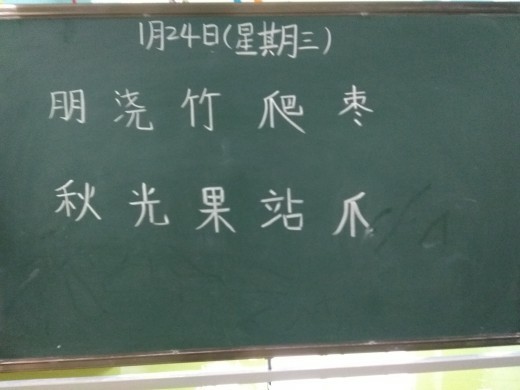 1月24日(星期月三)
朋 浇 竹 爬 枣
秋 光 果 站 爪